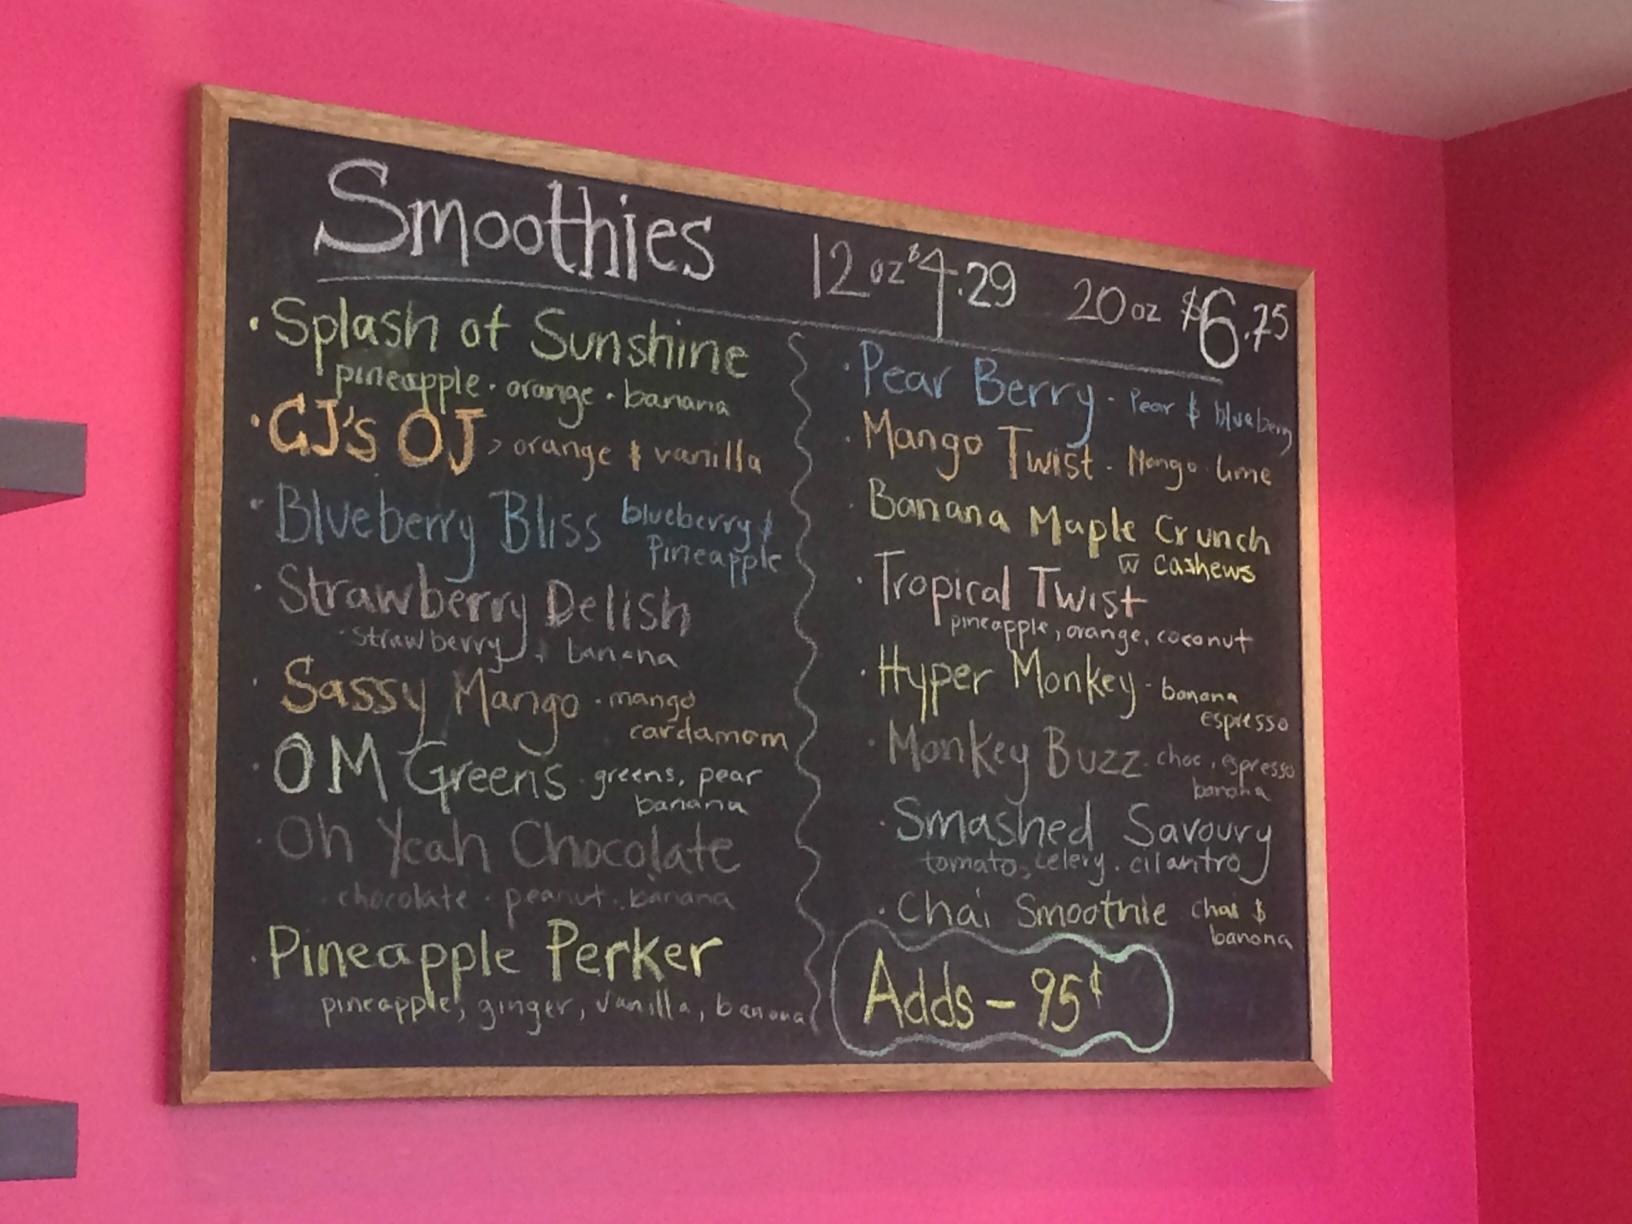 Smoothies 12 oz $4.29 20 oz $6.75
· Splash of Sunshine
pineapple · orange · banana
· CJ's OJ > orange & vanilla
· Blueberry Bliss blueberry &
Pineapple
· Strawberry Delish
· strawberry + banana
· Sassy Mango · mango
cardamom
· OM Greens · greens, pear
banana
· Oh Yeah Chocolate
· chocolate · peanut · banana
· Pineapple Perker
pineapple, ginger, vanilla, banana
· Pear Berry - Pear & blueberry
· Mango Twist - Mango · lime
· Banana Maple Crunch
w cashews
· Tropical Twist
pineapple, orange, coconut
· Hyper Monkey - banana
espresso
· Monkey Buzz choc, espresso
banana
· Smashed Savoury
tomato, celery, cilantro
· Chai Smoothie chai &
banana
Adds - 95¢